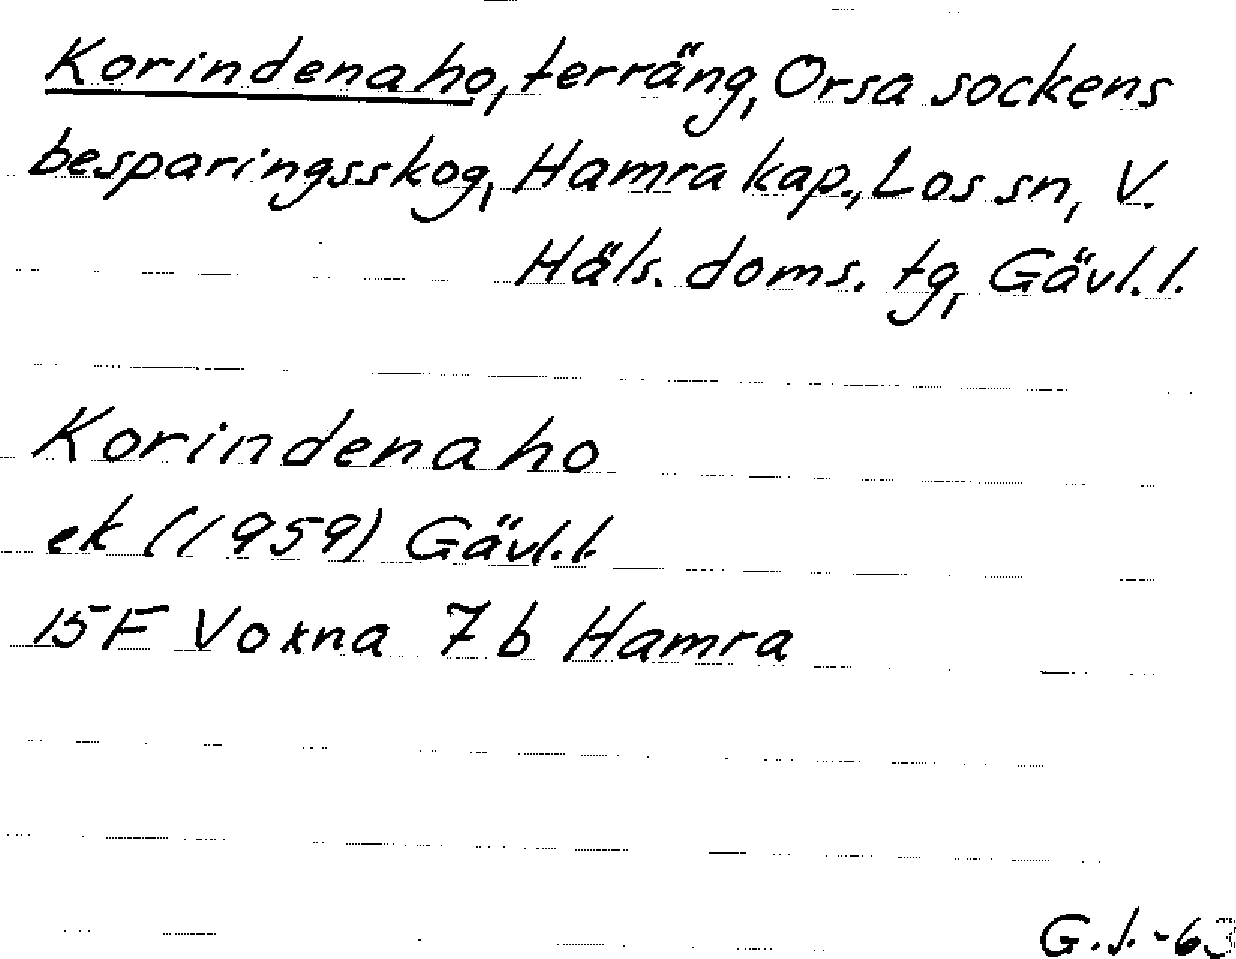 Korindenaho, terräng, Orsa sockens
besparingsskog, Hamra kap., Los sn, V.
Häls. doms. tg, Gävl. l.
Korindenaho
ek (1959) Gävl. l.
15F Voxna 7b Hamra
G.J. -63